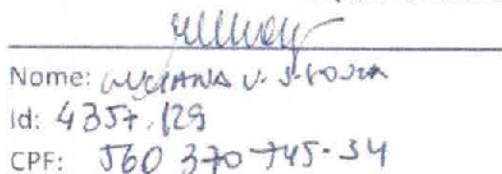 Nome: LUCIANA V. S. SOUZA
Id: 4357.129
CPF: 560 370 745-34